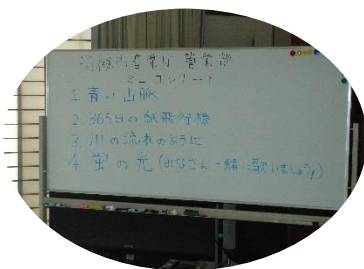 ミニコンサート
1. 青い山脈
2. 365日の紙飛行機
3. 川の流れのように
4. 蛍の光(みなさん一緒に歌いましょう!)